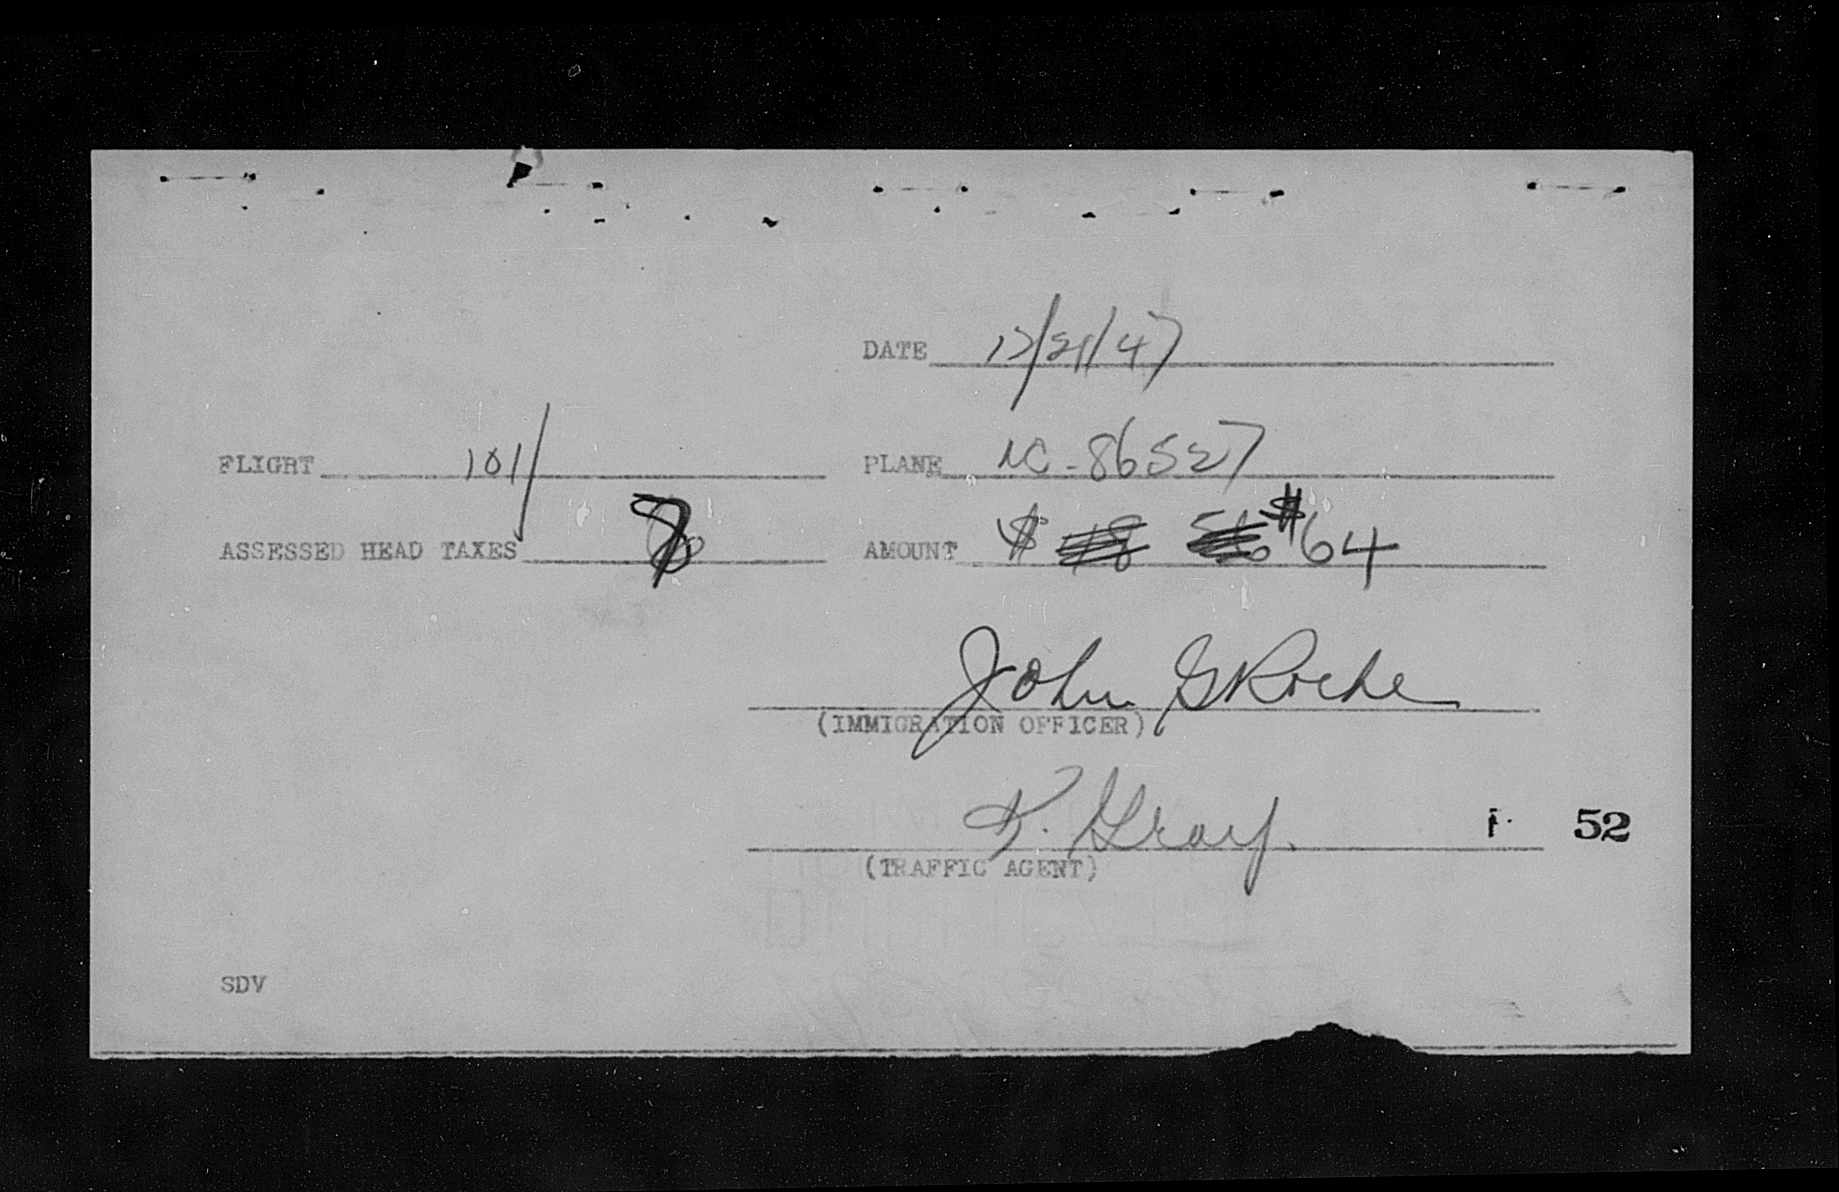 DATE 12/21/47
FLIGHT 101/ PLANE NC-86527
ASSESSED HEAD TAXES 8 AMOUNT $ 48 56 $64
John G Roche
(IMMIGRATION OFFICER)
K. Gray.
52
(TRAFFIC AGENT)
SDV